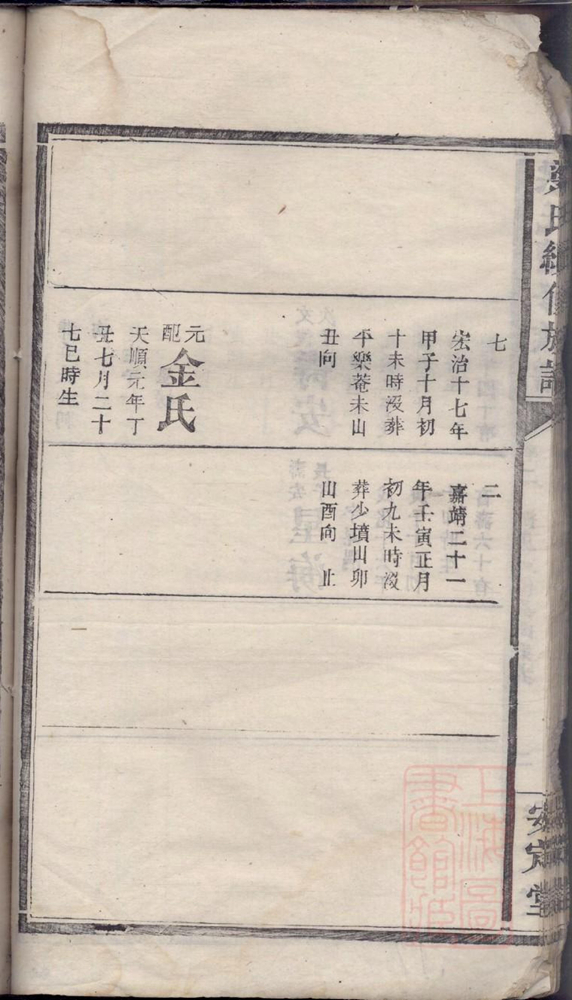 七
宏治十七年
甲子十月初
十未時歿葬
平樂菴未山
丑向
元配金氏
天順元年丁
丑七月二十
七巳時生
二
嘉靖二十一
年壬寅正月
初九未時歿
葬少墳山卯
山酉向 止
氏
修族譜
安定堂
上海圖書館